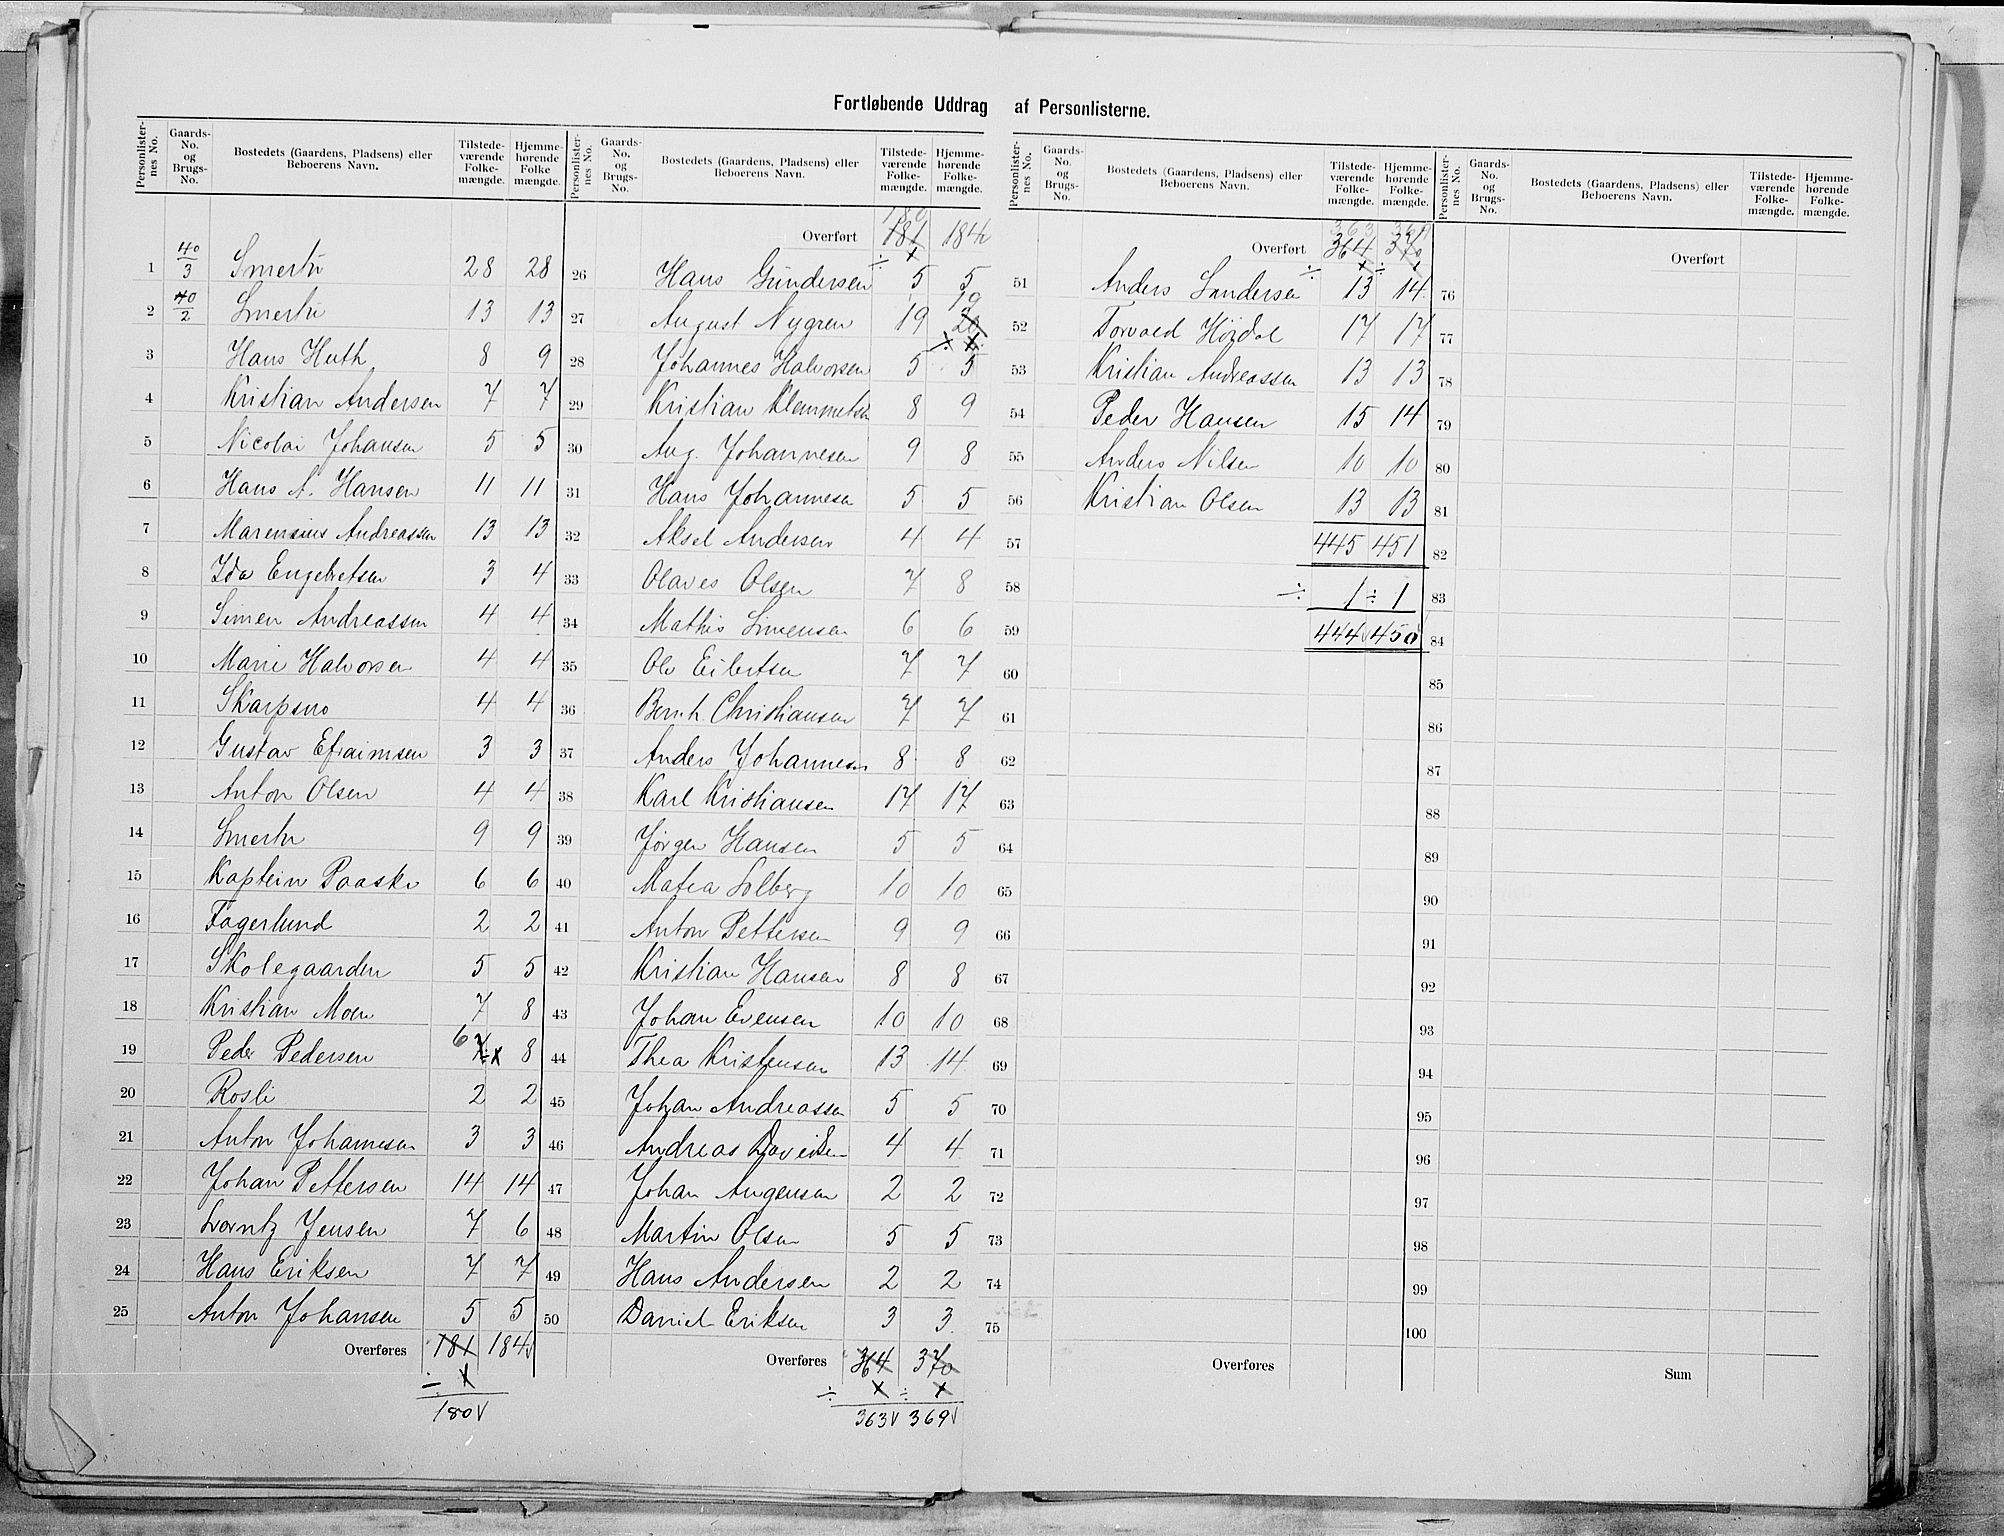 Fortløbende Uddrag af Personlisterne.
Personlisternes No. | Gaards-No. og Brugs-No. | Bostedets (Gaardens, Pladsens) eller Beboerens Navn. | Tilstedeværende Folkemængde. | Hjemmehørende Folkemængde.
1 40/3 Smertu 28 28
2 40/2 Smertu 13 13
3 Hans Huth 8 9
4 Kristian Andersen 7 7
5 Nicolai Johansen 5 5
6 Hans A. Hansen 11 11
7 Marensius Andreassen 13 13
8 Ida Engebretsen 3 4
9 Simen Andreassen 4 4
10 Marie Halvorsen 4 4
11 Skarpsno 4 4
12 Gustav Efraimsen 3 3
13 Anton Olsen 4 4
14 Smertu 9 9
15 Kaptein Paaske 6 6
16 Fagerlund 2 2
17 Skolegaarden 5 5
18 Kristian Moen 7 8
19 Peder Pedersen 6 7 8
20 Rosli 2 2
21 Anton Johannesen 3 3
22 Johan Pettersen 14 14
23 Lorntz Jensen 7 6
24 Hans Eriksen 7 7
25 Anton Johansen 5 5
Overføres 181 184
÷ 1
180
Personlisternes No. | Gaards-No. og Brugs-No. | Bostedets (Gaardens, Pladsens) eller Beboerens Navn. | Tilstedeværende Folkemængde. | Hjemmehørende Folkemængde.
180
Overført 181 184
÷ 1
26 Hans Gundersen 5 5
27 August Nygren 19 19 20
÷ 1
28 Johannes Halvorsen 5 5
29 Kristian Klemmetsen 8 9
30 Aug. Johannesen 9 8
31 Hans Johannesen 5 5
32 Aksel Andersen 4 4
33 Olaves Olsen 7 8
34 Mathis Simensen 6 6
35 Ole Eilertsen 7 7
36 Bernh. Christiansen 7 7
37 Anders Johannesen 8 8
38 Karl Kristiansen 17 17
39 Jørgen Hansen 5 5
40 Matea Solberg 10 10
41 Anton Pettersen 9 9
42 Kristian Hansen 8 8
43 Johan Evensen 10 10
44 Thea Kristensen 13 14
45 Johan Andreassen 5 5
46 Andreas Davidsen 4 4
47 Johan Angensen 2 2
48 Martin Olsen 5 5
49 Hans Andersen 2 2
50 Daniel Eriksen 3 3
Overføres 364 370
÷ 1 ÷ 1
363 369
Personlisternes No. | Gaards-No. og Brugs-No. | Bostedets (Gaardens, Pladsens) eller Beboerens Navn. | Tilstedeværende Folkemængde. | Hjemmehørende Folkemængde.
363 369
Overført 364 370
÷ 1 ÷ 1
51 Anders Sandersen 13 14
52 Torvald Høidal 17 17
53 Kristian Andreassen 13 13
54 Peder Hansen 15 14
55 Anders Nilsen 10 10
56 Kristian Olsen 13 13
57 445 451
58 ÷ 1 ÷ 1
59 444 450
60
61
62
63
64
65
66
67
68
69
70
71
72
73
74
75
Overføres
Personlisternes No. | Gaards-No. og Brugs-No. | Bostedets (Gaardens, Pladsens) eller Beboerens Navn. | Tilstedeværende Folkemængde. | Hjemmehørende Folkemængde.
Overført
76
77
78
79
80
81
82
83
84
85
86
87
88
89
90
91
92
93
94
95
96
97
98
99
100
Sum